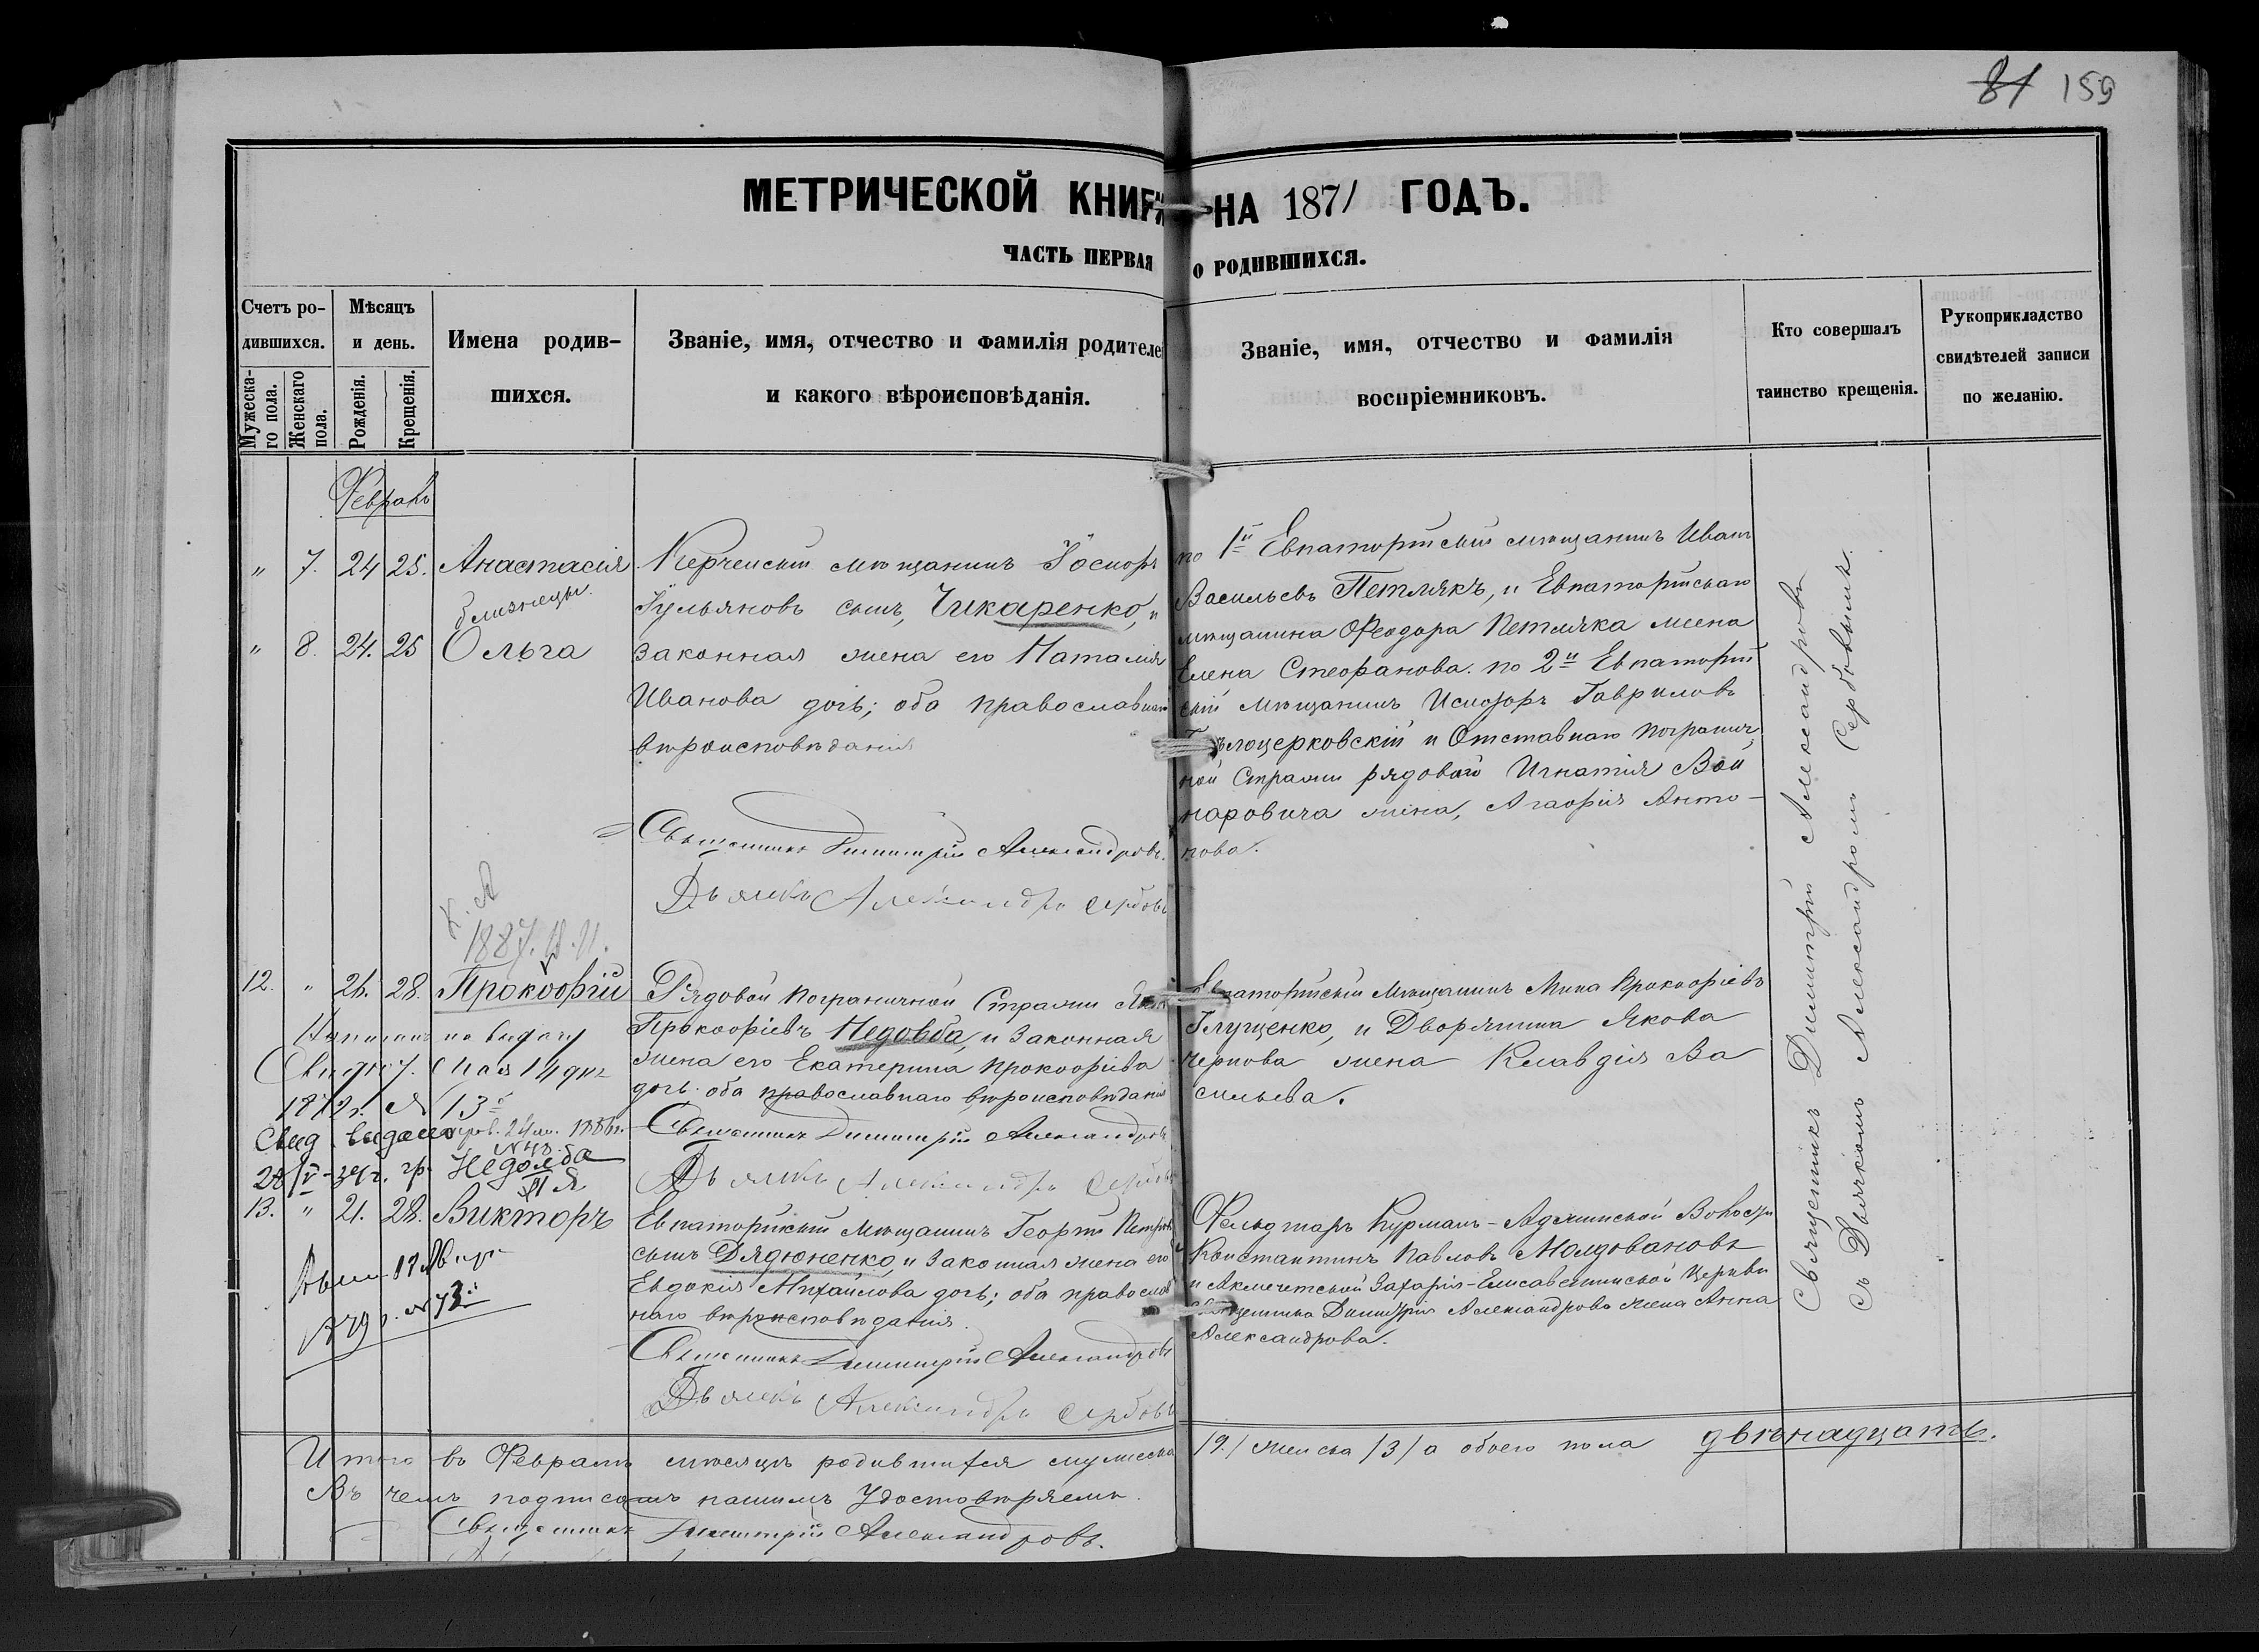 81 159
МЕТРИЧЕСКОЙ КНИГ НА 1871 ГОДЪ.
ЧАСТЬ ПЕРВАЯ О РОДИВШИХСЯ.
Счетъ ро-
дившихся.
Мужеска-
го пола.
Женскаго
пола.
Мѣсяцъ
и день.
Рожденія.
Крещенія.
Имена родив-
шихся.
Званіе, имя, отчество и фамилія родителе
и какого вѣроисповѣданія.
Званіе, имя, отчество и фамилія
воспріемниковъ.
Кто совершалъ
таинство крещенія.
Рукоприкладство
свидѣтелей записи
по желанію.
Февраль
" 7. 24 25. Анастасія
близнецы.
" 8. 24. 25 Ольга
Керченскій мѣщанинъ
сынъ, Чикаренко, и
законная жена его Наталія
Иванова дочь; оба православнаго
вѣроисповѣданія
Священникъ Димитрій Александровъ.
Дьячекъ Александръ Сербовъ
по 1й Евпаторійскій мѣщанинъ Иванъ
Васильевъ Петлякъ, и Евпаторійскаго
мѣщанина Феодора Петляка жена
Елена Стефанова. по 2й Евпаторій
скій мѣщанинъ Исидоръ Гавриловъ
Бѣлоцерковскій и Отставнаго погранич
ной Стражи рядоваго Игнатія Вой
наровича жена, Агафія Анто-
нова.
1887.
12. " 26. 28. Прокофій
Написано на выдачу
Свид. Мая 14 дня
1872 г. № 13й
Свид. выдано 24 1886 г.
28/V-34 г. гр. Недовба
Рядовой пограничной Стражи
Прокофіевъ Недовба, и законная
жена его Екатерина Прокофіева
дочь. оба православнаго вѣроисповѣданія
Священникъ Димитрій Александровъ
Дьячекъ Александръ Сербовъ
Евпаторійскій мѣщанинъ Мина Прокофіевъ
Глущенко, и Дворянина Якова
Чернова жена Клавдія Ва
сильева.
13. " 21. 28. Викторъ
17
1879 г. № 73й
Евпаторійскій мѣщанинъ Георгій Петровъ
сынъ Дядюненко, и законная жена его
Евдокія Михайлова дочь; оба православ
наго вѣроисповѣданія.
Священникъ Димитрій Александровъ
Дьячекъ Александръ Сербовъ
Фельдшаръ Курманъ-Аджинской Волости
Константинъ Павловъ Молдовановъ
и Акмечетской Захарія-Елисаветинской Церкви
Священника Димитрія Александрова жена Анна
Александрова.
Священникъ Димитрій Александровъ
съ Дьячкомъ Александромъ Сербовымъ.
Итого въ Февралѣ мѣсяцѣ родившихся мужеска /9./ женска /3/ а обоего пола двѣнадцать.
Въ чемъ подписомъ нашимъ Удостовѣряемъ.
Священникъ Димитрій Александровъ.